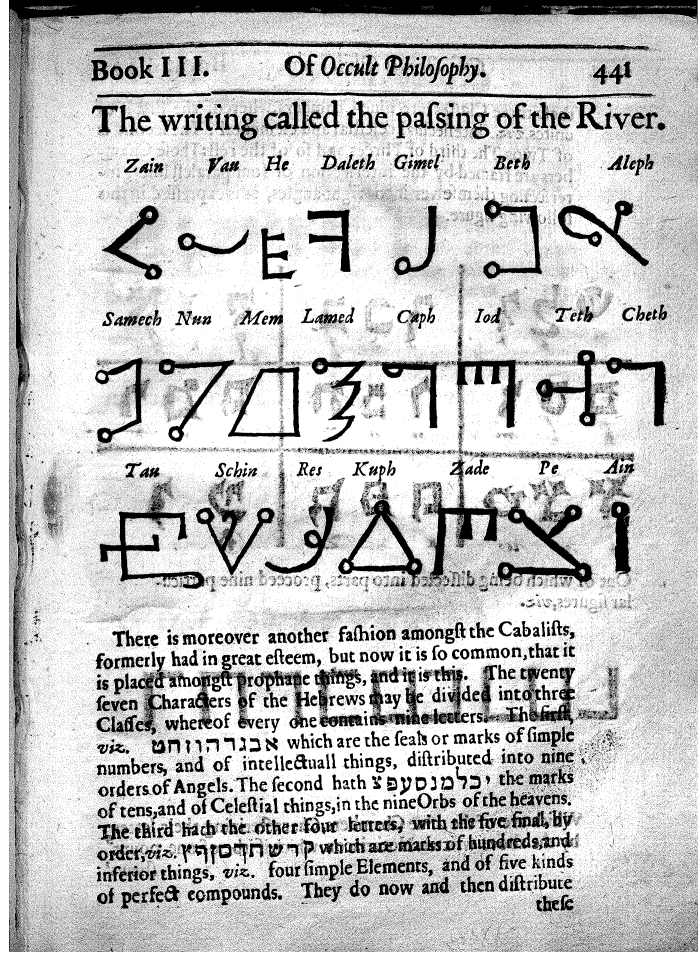 Book III. Of Occult Philoſophy. 441
The writing called the paſsing of the River.
Zain Vau He Daleth Gimel Beth Aleph
Samech Nun Mem Lamed Caph Iod Teth Cheth
Tau Schin Res Kuph Zade Pe Ain
There is moreover another faſhion amongſt the Cabaliſts,
formerly had in great eſteem, but now it is ſo common, that it
is placed amongſt prophane things, and it is this. The twenty
ſeven Characters of the Hebrews may be divided into three
Claſſes, whereof every one contains nine letters. The firſt,
viz. אבגדהוזחט which are the ſeals or marks of ſimple
numbers, and of intellectuall things, diſtributed into nine
orders of Angels. The ſecond hath יכלמנסעפצ the marks
of tens, and of Celeſtial things, in the nine Orbs of the heavens.
The third hath the other four letters, with the five final, by
order, viz. קרשתךםןףץ which are marks of hundreds, and
inferior things, viz. four ſimple Elements, and of five kinds
of perfect compounds. They do now and then diſtribute
theſe